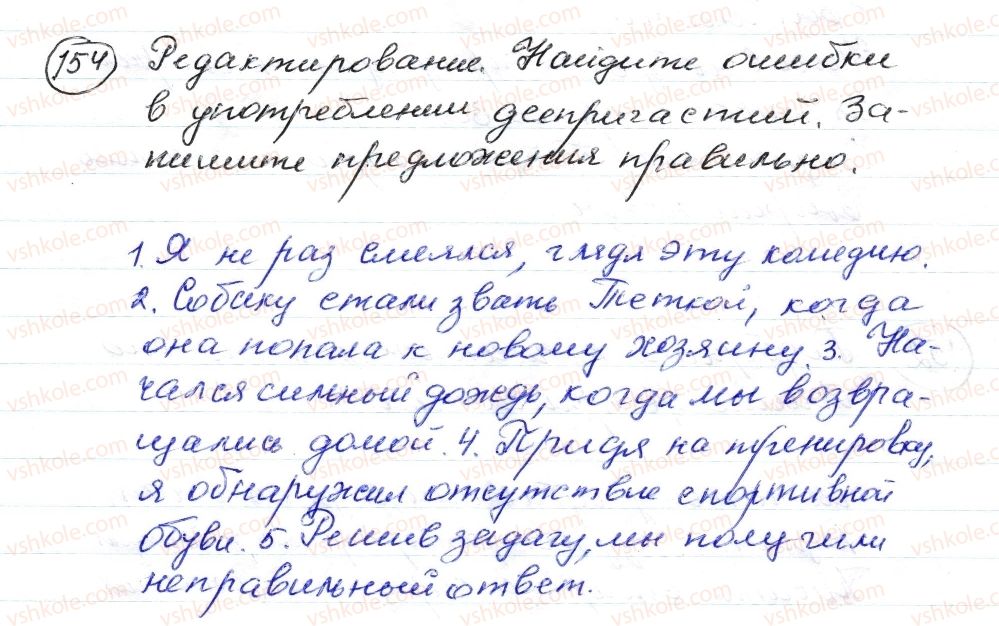 154 Редактирование. Найдите ошибки
в употреблении деепричастий. За-
пишите предложения правильно.
1. Я не раз смеялся, глядя эту комедию.
2. Собаку стали звать Теткой, когда
она попала к новому хозяину. 3. На-
чался сильный дождь, когда мы возвра-
щались домой. 4. Придя на тренировку,
я обнаружил отсутствие спортивной
обуви. 5. Решив задачу, мы получили
неправильный ответ.